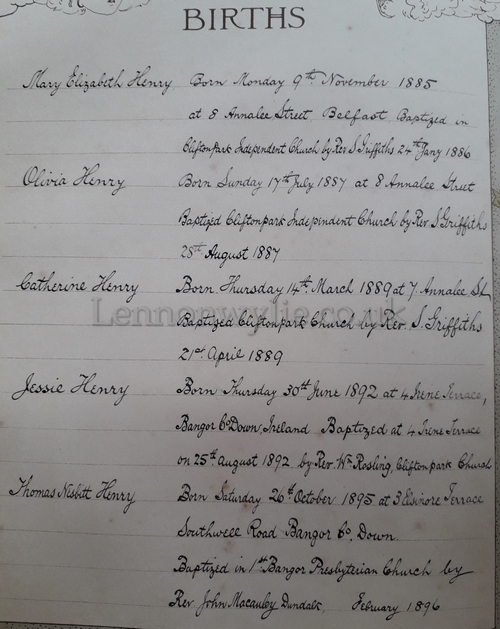 BIRTHS
Mary Elizabeth Henry Born Monday 9th November 1885
at 8 Annalee Street, Belfast Baptized in
Cliftonpark Independent Church by Rev S Griffiths 24th Jany 1886
Olivia Henry Born Sunday 17th July 1887 at 8 Annalee Street
Baptized Cliftonpark Independent Church by Rev. S. Griffiths
28th August 1887
Catherine Henry Born Thursday 14th March 1889 at 7 Annalee St
Lennonwylie.co.uk
Baptized Cliftonpark Church by Rev. S. Griffiths
21st April 1889
Jessie Henry Born Thursday 30th June 1892 at 4 Irene Terrace,
Bangor Co Down, Ireland Baptized at 4 Irene Terrace
on 25th August 1892 by Rev. Wm Rosling, Cliftonpark Church
Thomas Nesbitt Henry Born Saturday 26th October 1895 at 3 Elsinore Terrace
Southwell Road Bangor Co. Down.
Baptized in 1st Bangor Presbyterian Church by
Rev. John Macauley Dundalk, February 1896